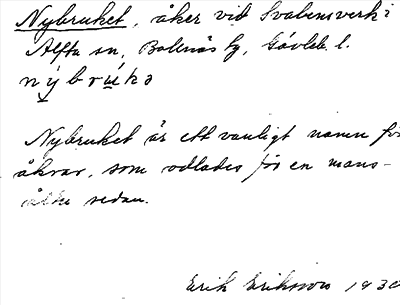 Nybruket, åker vid Svabensverk i
Alfta sn, Bollnäs tg, Gävleb. l.
nýbrúkə
Nybruket är ett vanligt namn för
åkrar, som odlades för en mans-
ålder sedan.
Erik Eriksson 1930